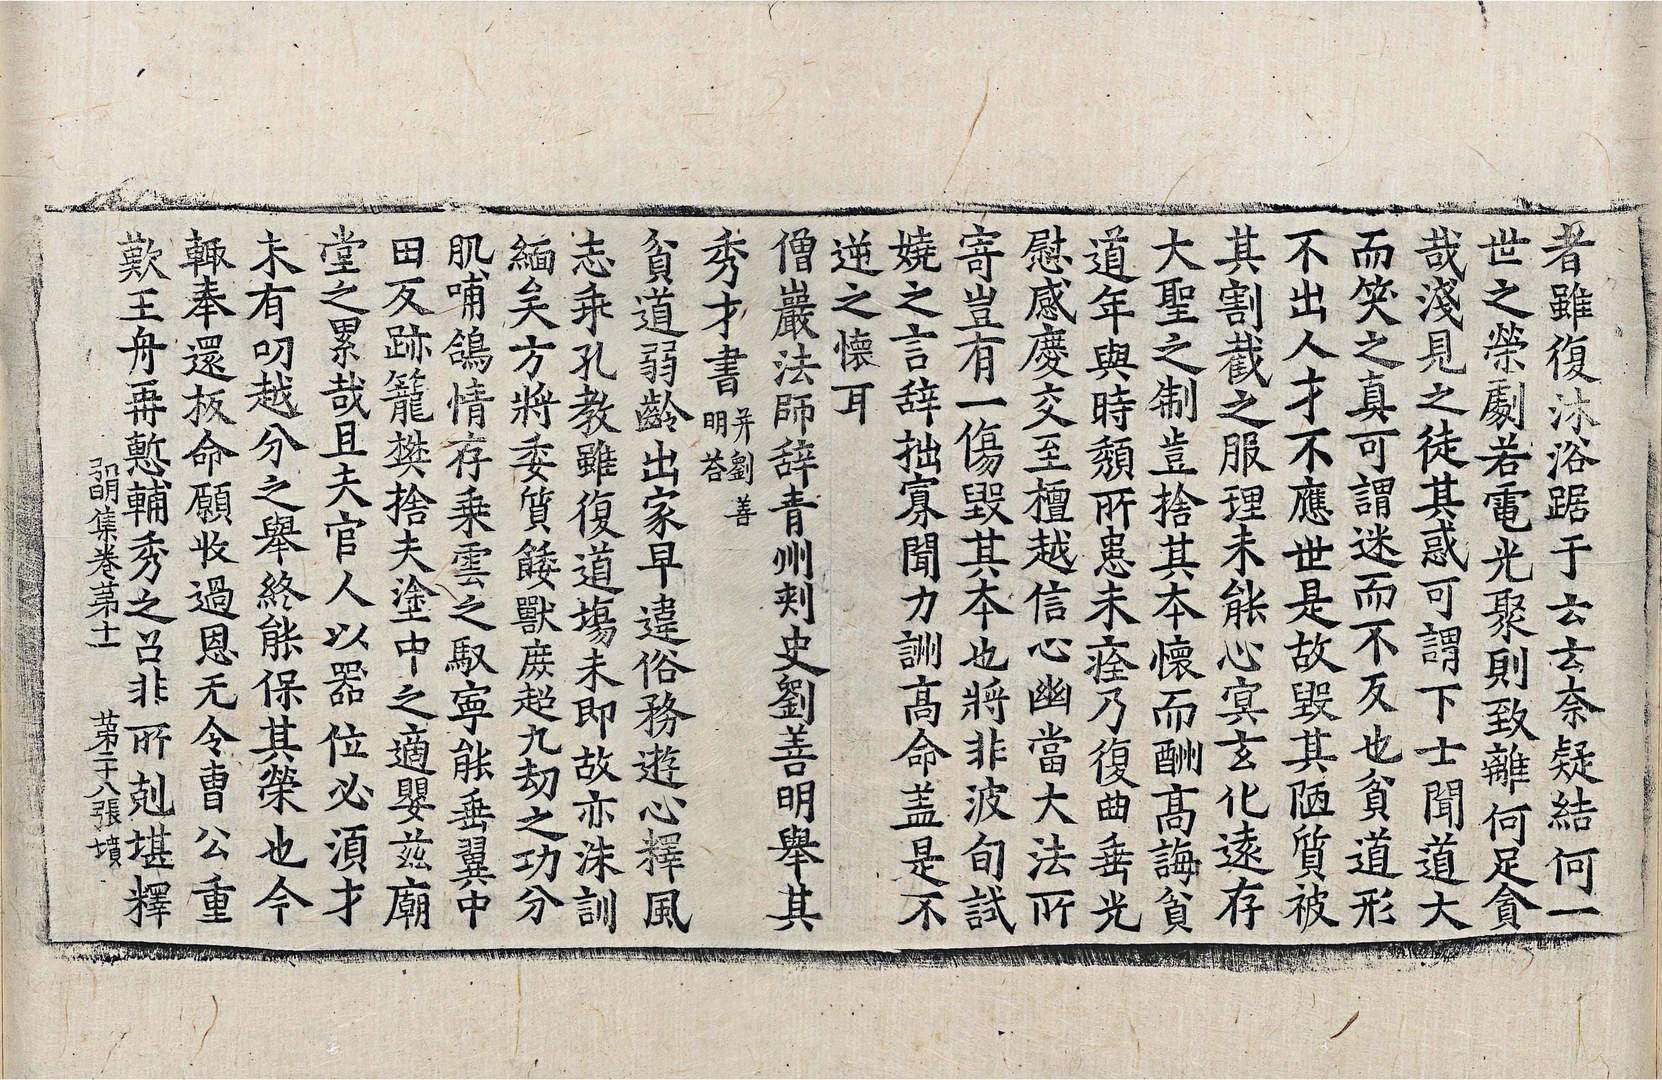 者雖復沐浴踞于去去奈疑結何一
世之榮劇若電光聚則致離何足貪
哉淺見之徒其惑可謂下士聞道大
而笑之真可謂迷而不反也貧道形
不出人才不應世是故毀其陋質被
其割截之服理未能心冥玄化遠存
大聖之制豈捨其本懷而酬高誨貧
道年與時頹所患未痊乃復曲垂光
慰感慶交至檀越信心幽當大法所
寄豈有一傷毀其本也將非波旬試
嬈之言辞拙寡聞力詶高命盖是不
逆之懷耳
僧巖法師辞青州刾史劉善明舉其
秀才書并劉善
明荅
貧道弱齡出家早違俗務遊心釋風
志乖孔教雖復道塲未即故亦洙訓
緬矣方將委質餧獸庶超九劫之功分
肌哺鴿情存乗雲之馭寧能垂翼中
田反跡籠樊捨夫塗中之適嬰茲廟
堂之累哉且夫官人以器位必湏才
未有叨越分之舉終能保其榮也今
輙奉還板命願收過恩无令曹公重
歎王舟再慙輔秀之召非所剋堪釋
弘明集卷苐十一 苐二十八張 墳